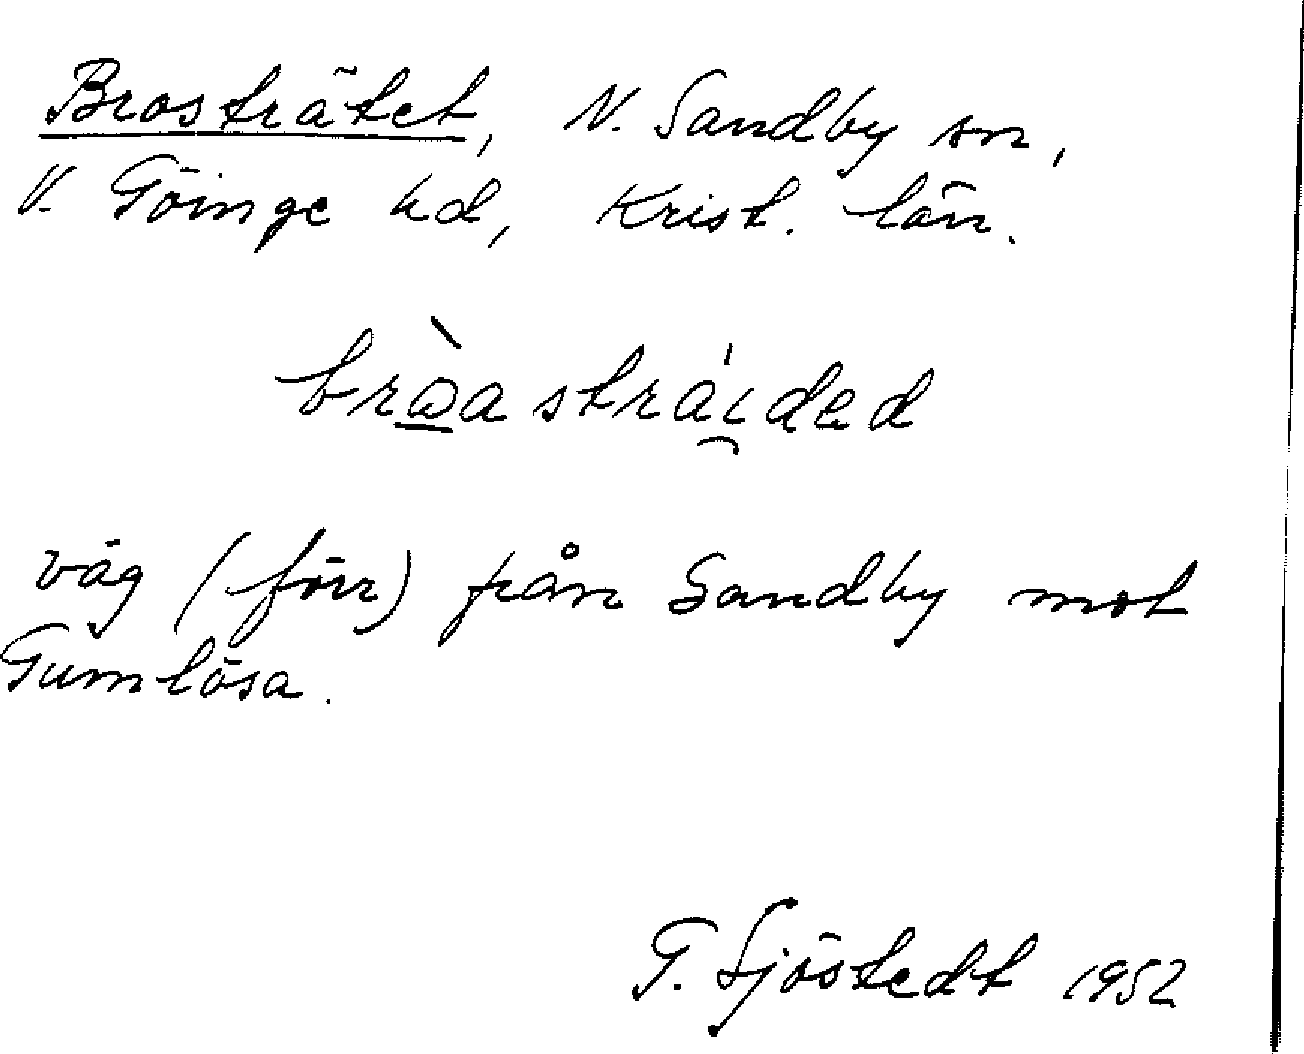 Brosträtet, N. Sandby sn,
V. Göinge hd, Krist. län.
väg (förr) från Sandby mot
Gumlösa.
G. Sjöstedt 1952